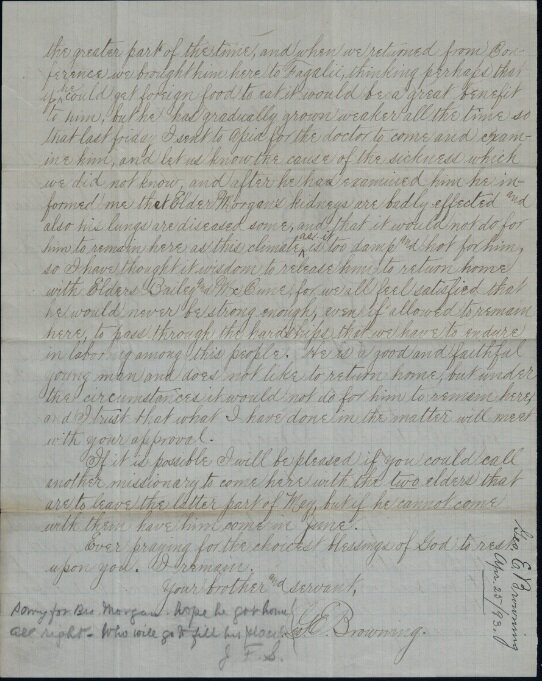 the greater part of the time, and when we returned from Con-
ference we brought him here to Fagalii, thinking perhaps that
if he could get foreign food to eat it would be a great benefit
to him, but he has gradually grown weaker all the time so
that last friday I sent to Apia for the doctor to come and exam-
ine him, and let us know the cause of the sickness which
we did not know, and after he had examined him he in-
formed me that Elder Morgan's kidneys are badly effected and
also his lungs are diseased some, and that it would not do for
him to remain here as this climate as it is too damp and hot for him,
so I have thought it wisdom to release him to return home
with Elders Bailey and McCune, for we all feel satisfied that
he would never be strong enough, even if allowed to remain
here, to pass through the hardships that we have to endure
in laboring among this people. He is a good and faithful
young man and does not like to return home, but under
the circumstances it would not do for him to remain here,
and I trust that what I have done in the matter will meet
with your approval.
If it is possible I will be pleased if you could call
another missionary to come here with the two elders that
are to leave the latter part of May, but if he cannot come
with them have him come in June.
Ever praying for the choicest blessings of God to rest
upon you. I remain.
Your brother and servant,
G. E. Browning.
Sorry for Bro Morgan. hope he got home
all right - Who will go to fill his place?
J. F. S.
Geo. E. Browning
Apr. 25/93.